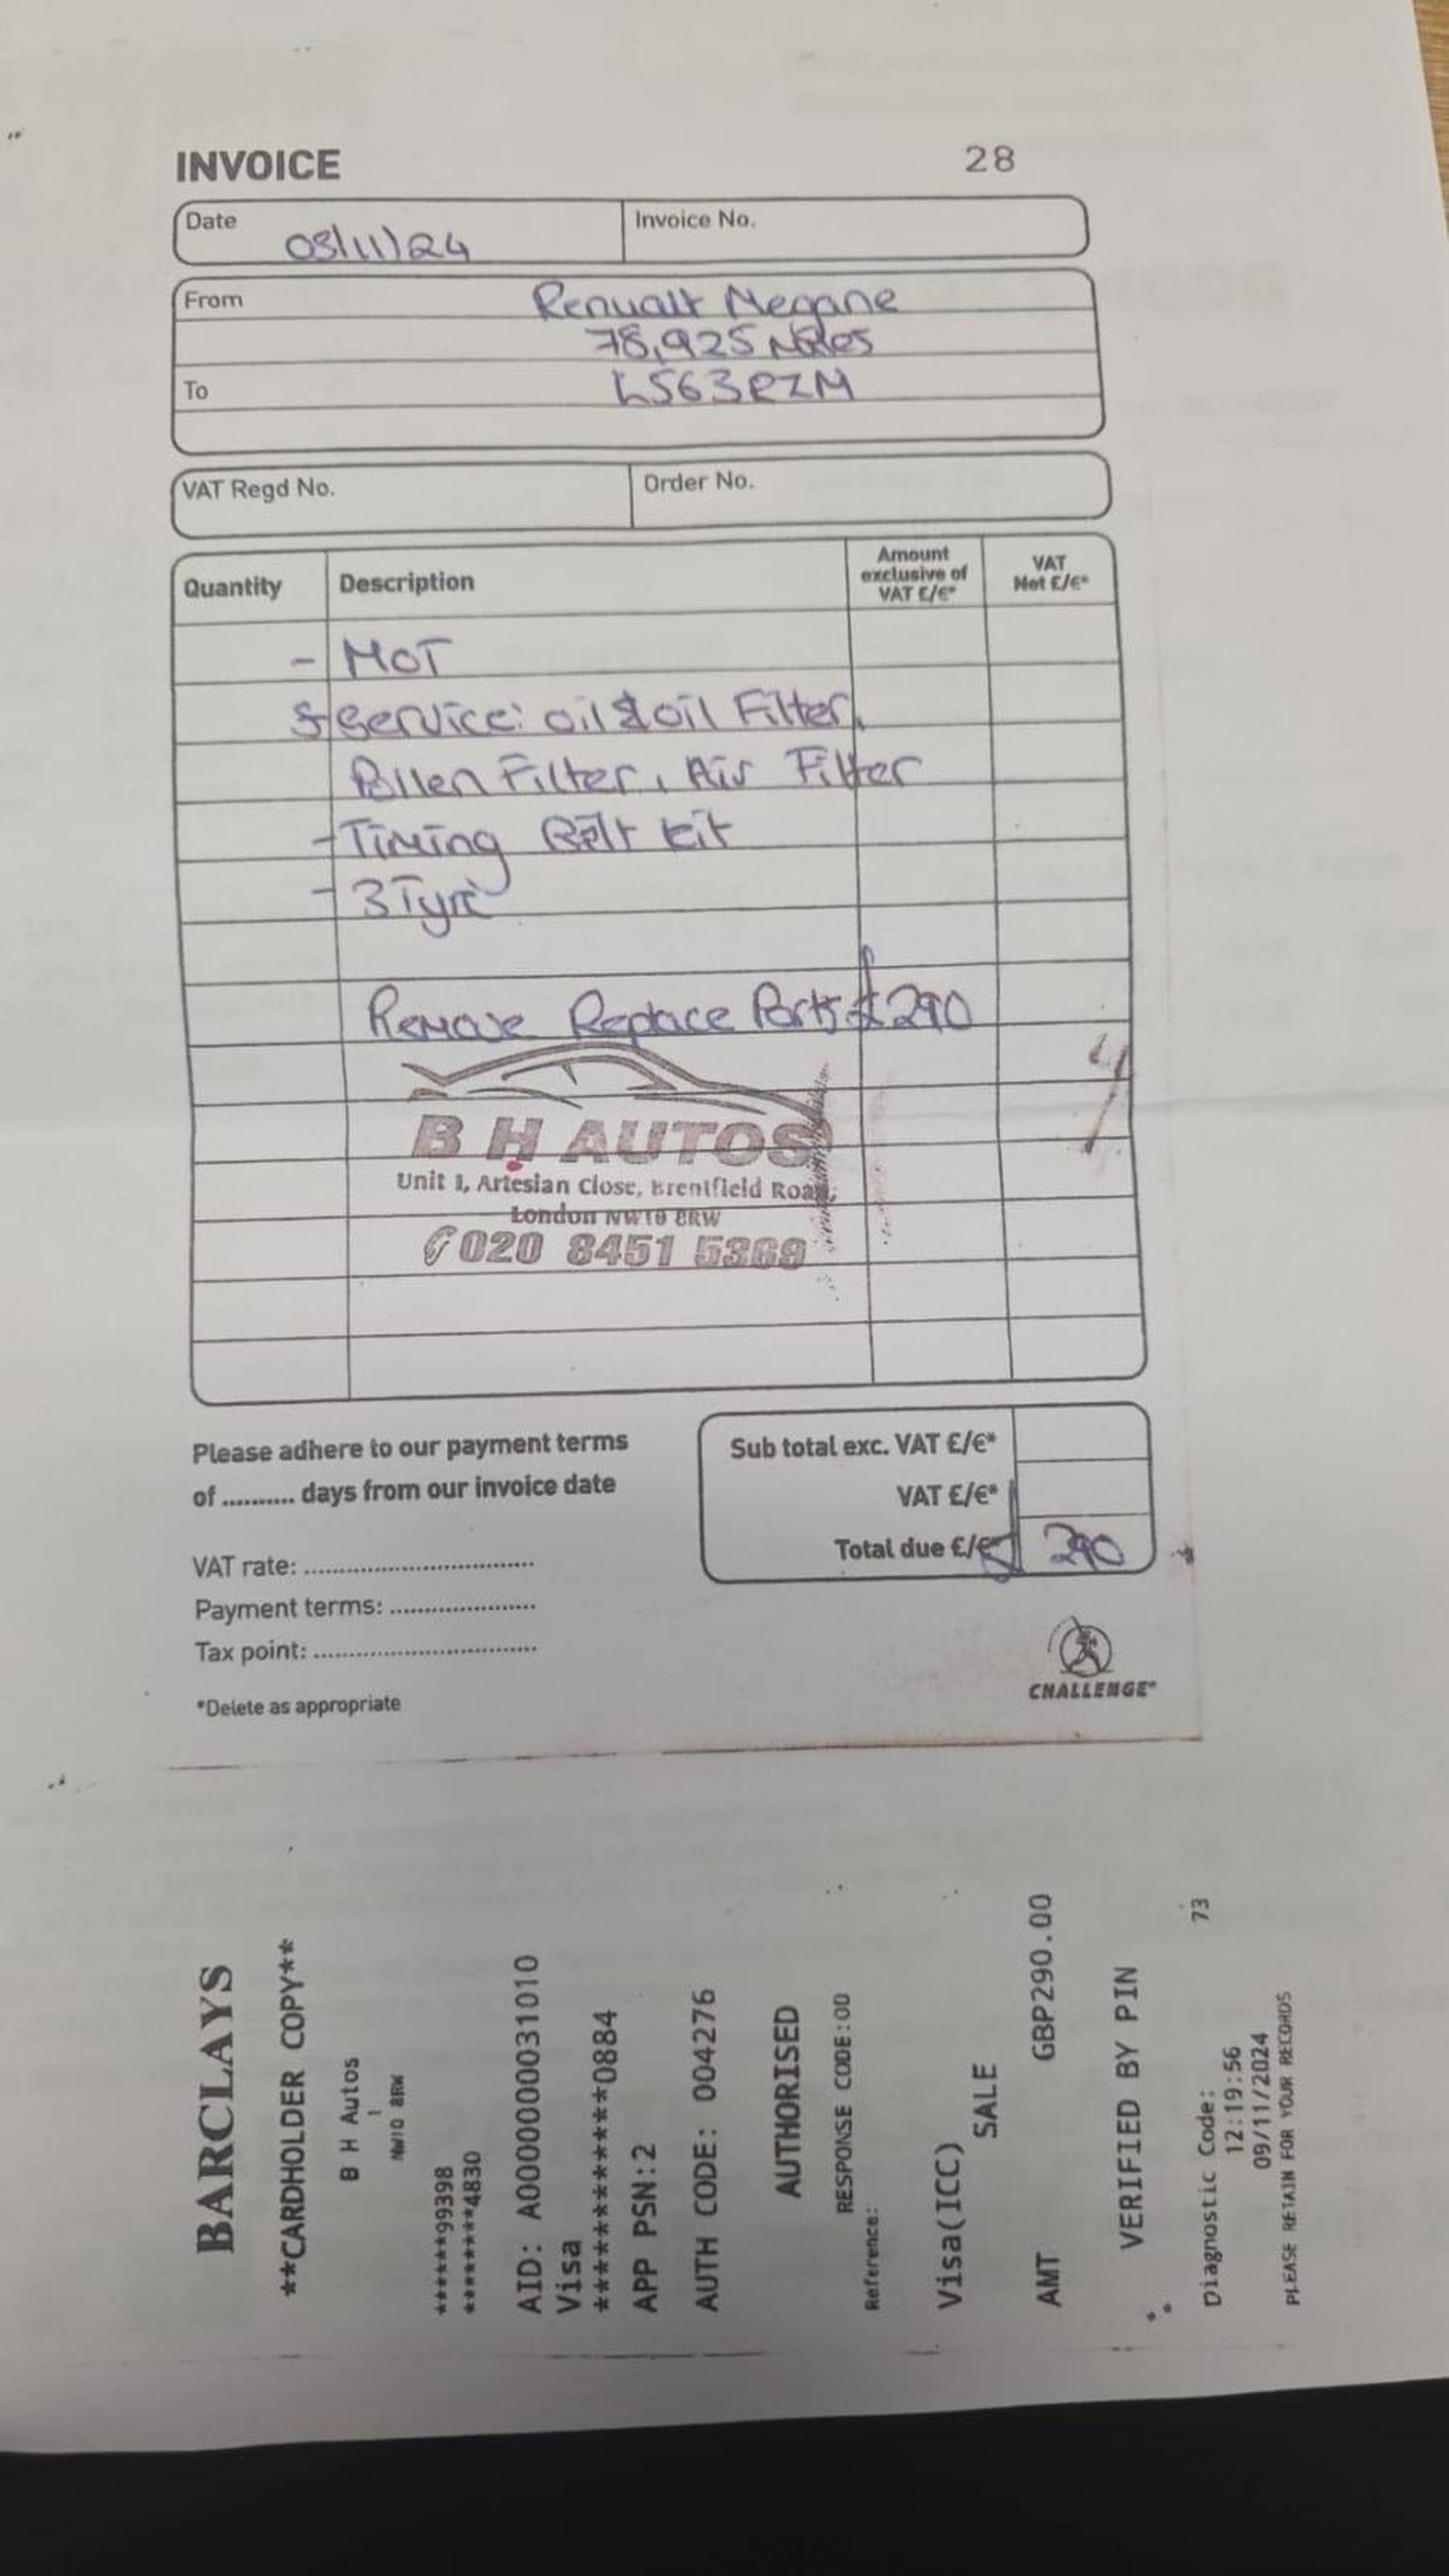 INVOICE
28
Date
03/11/24
Invoice No.
From
Renualt Megane
78,925 Miles
To
LS63RZM
VAT Regd No.
Order No.
Quantity
Description
Amount exclusive of VAT £/€*
VAT Net £/€*
- MOT
Service: oil & oil Filter,
Pollen Filter, Air Filter
- Timing Belt kit
- 3 Tyre
Remove Replace Parts £290
B H AUTOS
Unit 1, Artesian Close, Brentfield Road,
London NW10 8RW
020 8451 5369
Please adhere to our payment terms
of .......... days from our invoice date
Sub total exc. VAT £/€*
VAT £/€*
Total due £/€*
290
VAT rate:
Payment terms:
Tax point:
*Delete as appropriate
CHALLENGE®
BARCLAYS
**CARDHOLDER COPY**
B H Autos
1
NW10 8RW
******99398
********4830
AID: A0000000031010
Visa
************0884
APP PSN:2
AUTH CODE: 004276
AUTHORISED
RESPONSE CODE:00
Reference:
Visa(ICC)
SALE
AMT GBP290.00
VERIFIED BY PIN
Diagnostic Code: 73
12:19:56
09/11/2024
PLEASE RETAIN FOR YOUR RECORDS